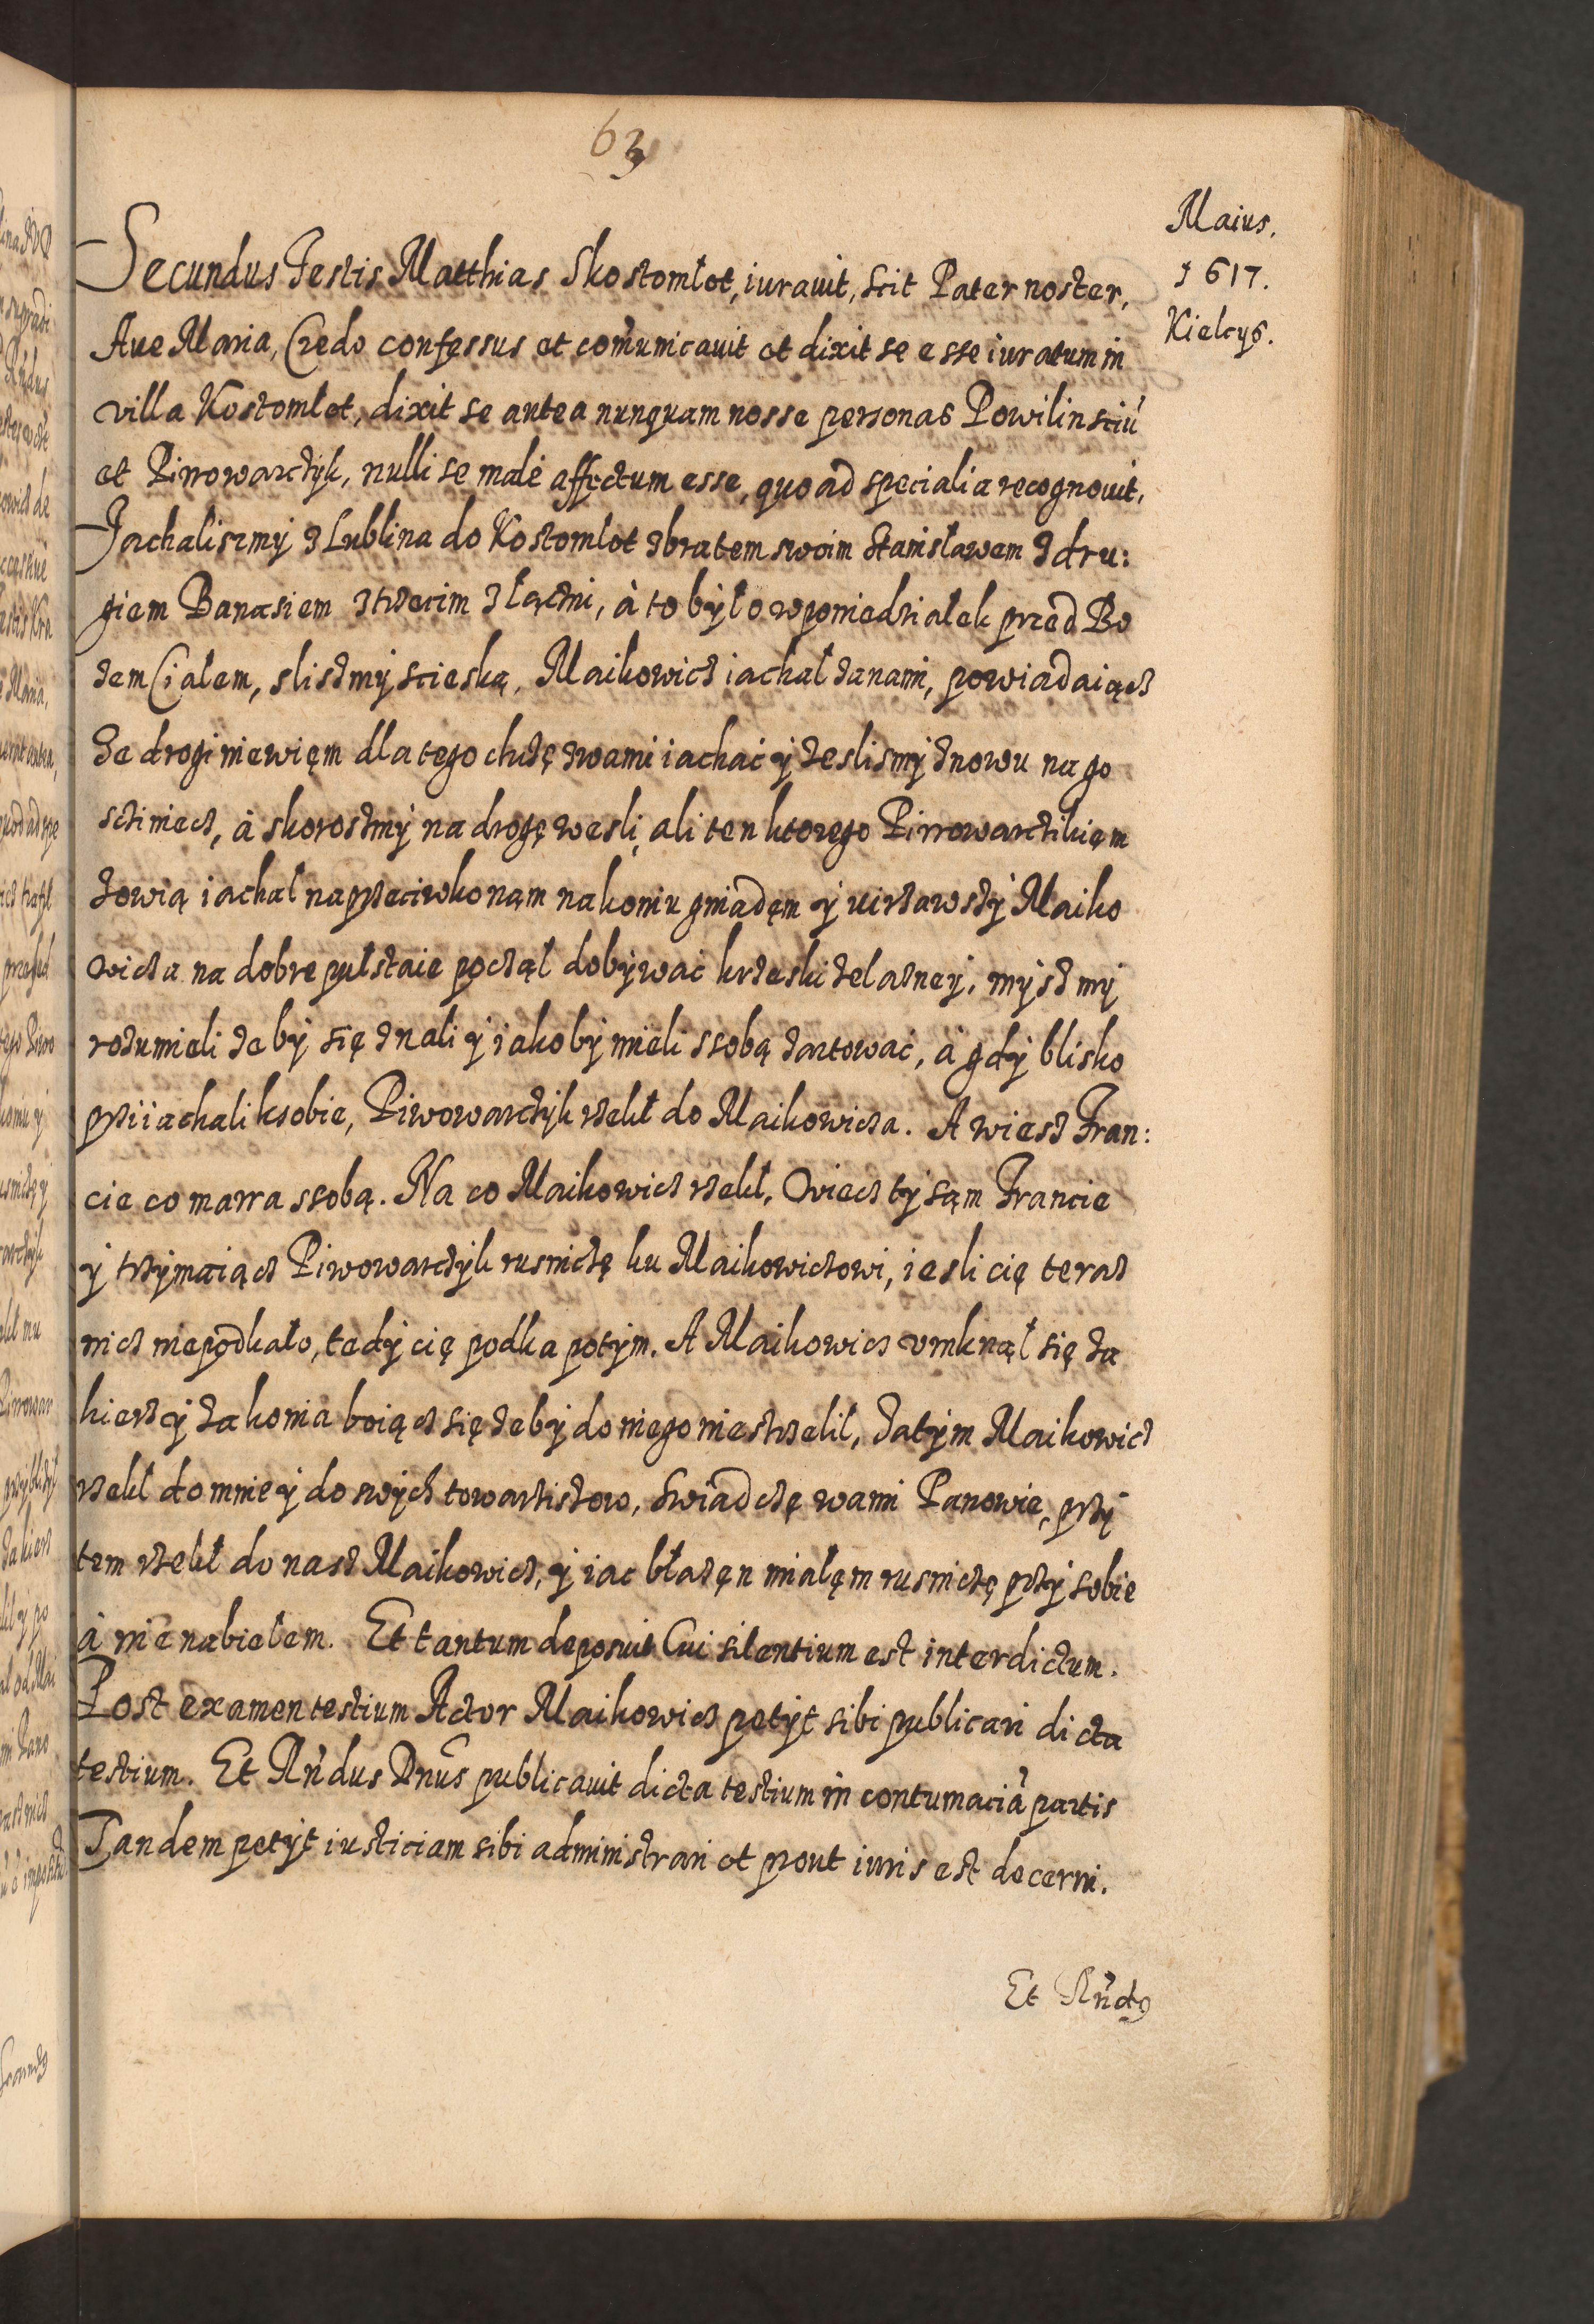 63
Maius.
1617.
Kielcys.
Secundus Testis Matthias Skostomłot, iurauit, scit Pater noster,
Aue Maria, Credo confessus et com̃unicauit et dixit se esse iuratum in
villa Kostomlot, dixit se antea nunquam nosse personas Powilinsciũ
et Piwowarczÿk, nulli se malè affectum esse, quo ad specialia recognouit,
Jachaliszmÿ z Lublina do Kostomlot zbratem swoim Stanisławem z dru:
giem Banasiem ztrzecim z łączni, à to bÿło wponiedziałek przed Bo
zem Ciałem, sliszmÿ scieską, Maikowicz iachał zanami, powiadaiącz
ze drogi niewięm dlatego chczę zwami iachać ÿ zeslismÿ znowu na go
scziniecz, à skoroszmÿ na drogę wesli, ali ten ktorego Piwowarczikięm
zowią iachał naprzeciwko nąm nakoniu gniadęm ÿ uirzawszÿ Maiko
wicza na dobre pułstaie począł dobÿwać krzeski zelaznej, mÿszmÿ
rozumieli ze bÿ się znali ÿ iakobÿ mieli ssobą zartować, à gdÿ blisko
prziiachali ksobie, Piwowarczÿk rzekł do Maikowicza. A wiesz Fran:
cie co marra ssobą. Na co Maikowicz rzekł, Owiecz tÿ sąm Francie
ÿ trzÿmaiącz Piwowarczÿk rusniczę ku Maikowiczowi, iesli cię teraz
nicz niepodkało, tedÿ cię podka potÿm. A Maikowicz vmknął się za
kierz ÿ za konia boiącz się zebÿ do niego niestrzelił, Zatÿm Maikowicz
rzekł do mnie ÿ do swÿch towarziszow, swiadczę wami Panowie, przÿ
tem rzekł do nasz Maikowicz, ÿ iac błazęn miałęm rusniczę przÿ sobie
à nie nabiełem. Et tantum deposuit Cui silentium est interdictum.
Post examen testium Actor Maikowicz petÿt sibi publicari dicta
testium. Et Rñdus Dnus publicauit dicta testium in contumaciã partis
Tandem petÿt iusticiam sibi administrari et prout iuris est decerni.
Et Rñdꝰ